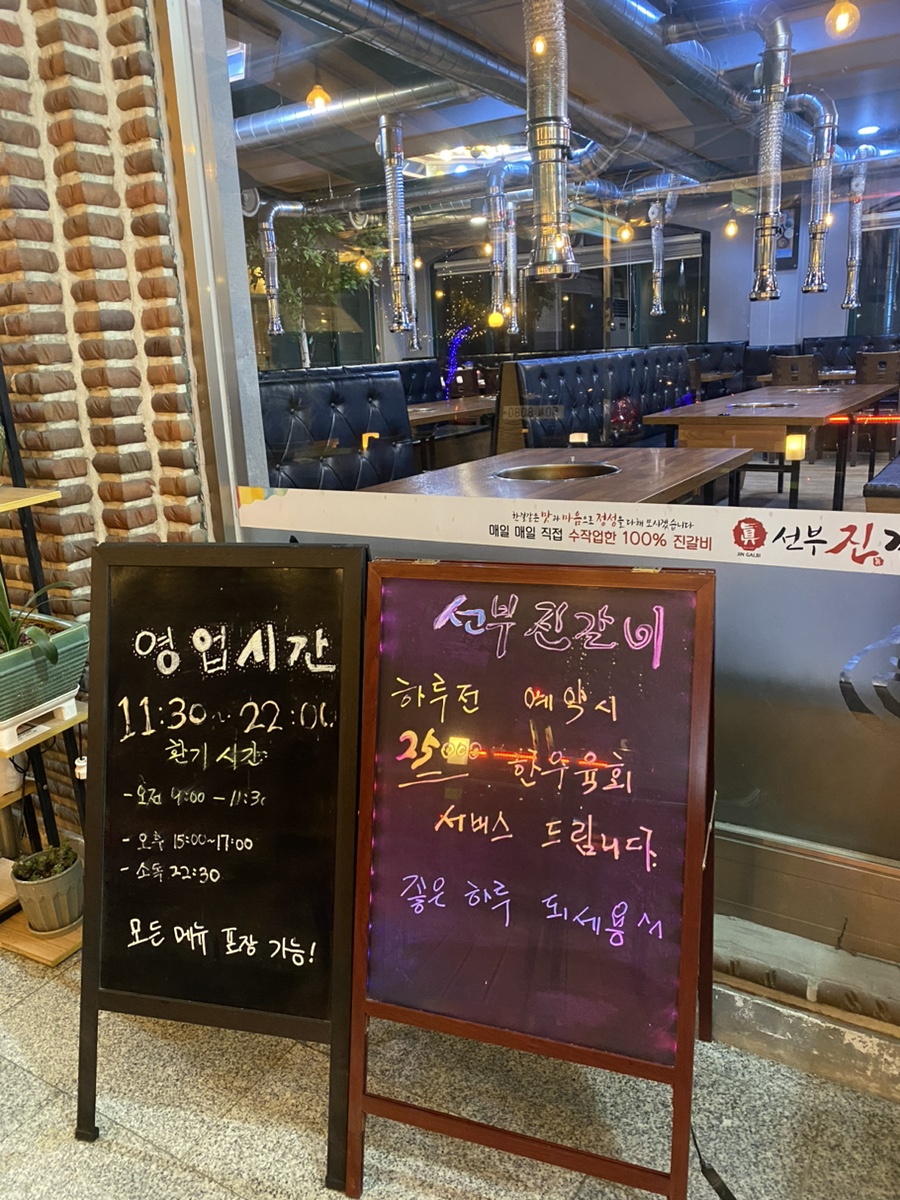 한결같은 맛과 마음으로 정성을 다해 모시겠습니다
매일 매일 직접 수작업한 100% 진갈비
眞
JIN GALBI
선부 진
영업시간
11:30 ~ 22:00
환기 시간
- 오전 9:00 - 11:30
- 오후 15:00~17:00
- 소독 22:30
모든 메뉴 포장 가능!
선부 진갈비
하루전 예약시
25000 한우육회
서비스 드립니다.
좋은 하루 되세용^^